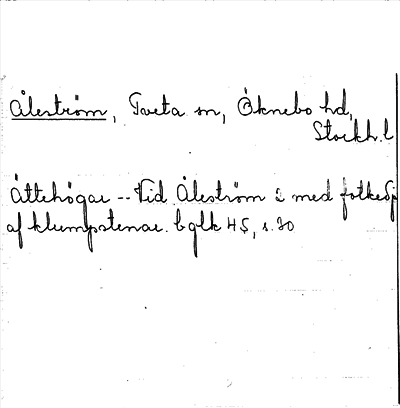 Åleström, Tveta sn, Öknebo hd,
Stockh. l
Ättehögar -- Vid Åleström 2 med fotkedj
af klumpstenar. bglk 45, s. 20